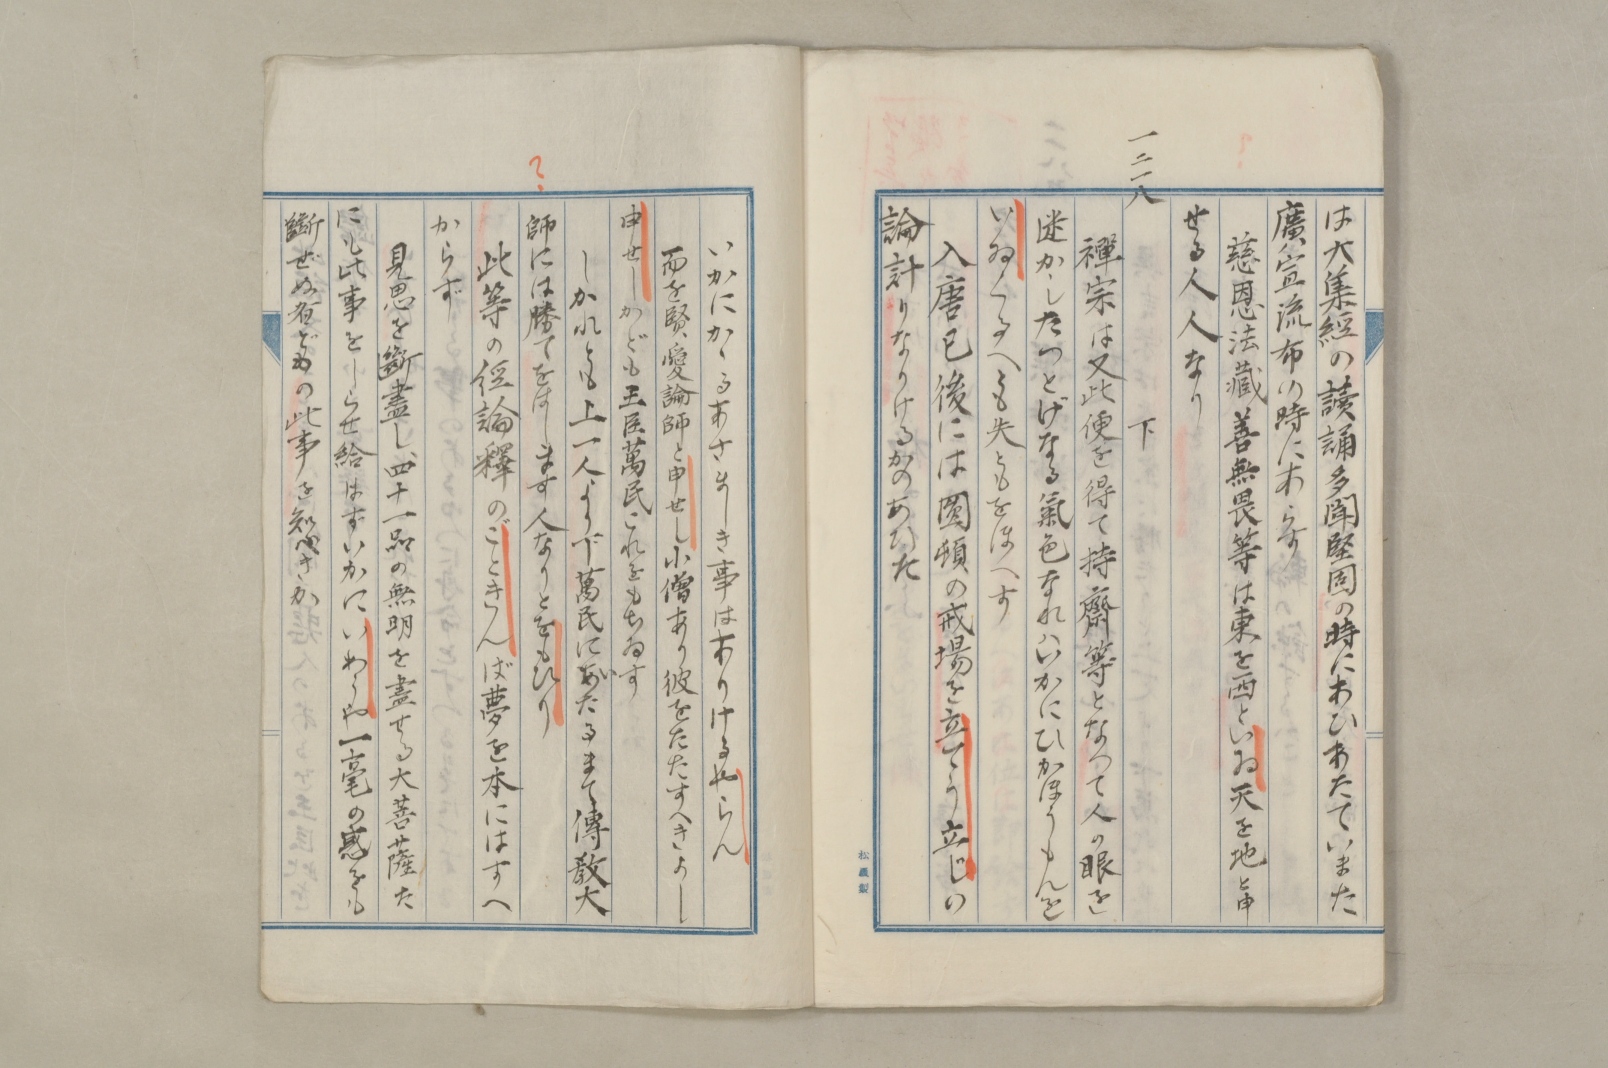 は大集經の讀誦多聞堅固の時にあひあたていまた
廣宣流布の時にあらす
慈恩法藏善無畏等は東を西といゐ天を地と申
せる人人なり
一二一八　下
禪宗は又此便を得て持齋等となつて人の眼を
迷かしたつとげなる氣色なれハいかにひかほうもんを
いゐくるへとも失ともをほへす
入唐已後には圓頓の戒場を立てう立じの
論計りなりけるかのあひた
いかにかゝるあさましき事はありけるやらん
而を賢愛論師と申せし小僧あり彼をたたすへきよし
申せしかども王臣萬民これをもちゐす
しかれとも上一人より下萬民にあたるまて傳教大
師には勝てをはします人なりとをもひり
此等の經論釋のごときんば夢を本にはすへ
からず
見思を斷盡し、四十一品の無明を盡せる大菩薩た
にも此事をしらせ給はずいかにいわうや一毫の惑をも
斷ぜぬ者どもの此事を知へきか
？
松屋製